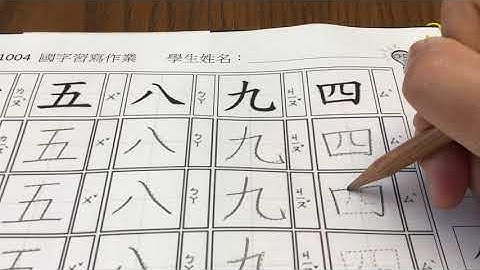 1004 國字習寫作業 學生姓名：
五ㄨˇ 八ㄅㄚ 九ㄐㄧㄡˇ 四ㄙˋ
五ㄨˇ 八ㄅㄚ 九ㄐㄧㄡˇ 四ㄙˋ
五ㄨˇ 八ㄅㄚ 九ㄐㄧㄡˇ 四
五 八 九 四